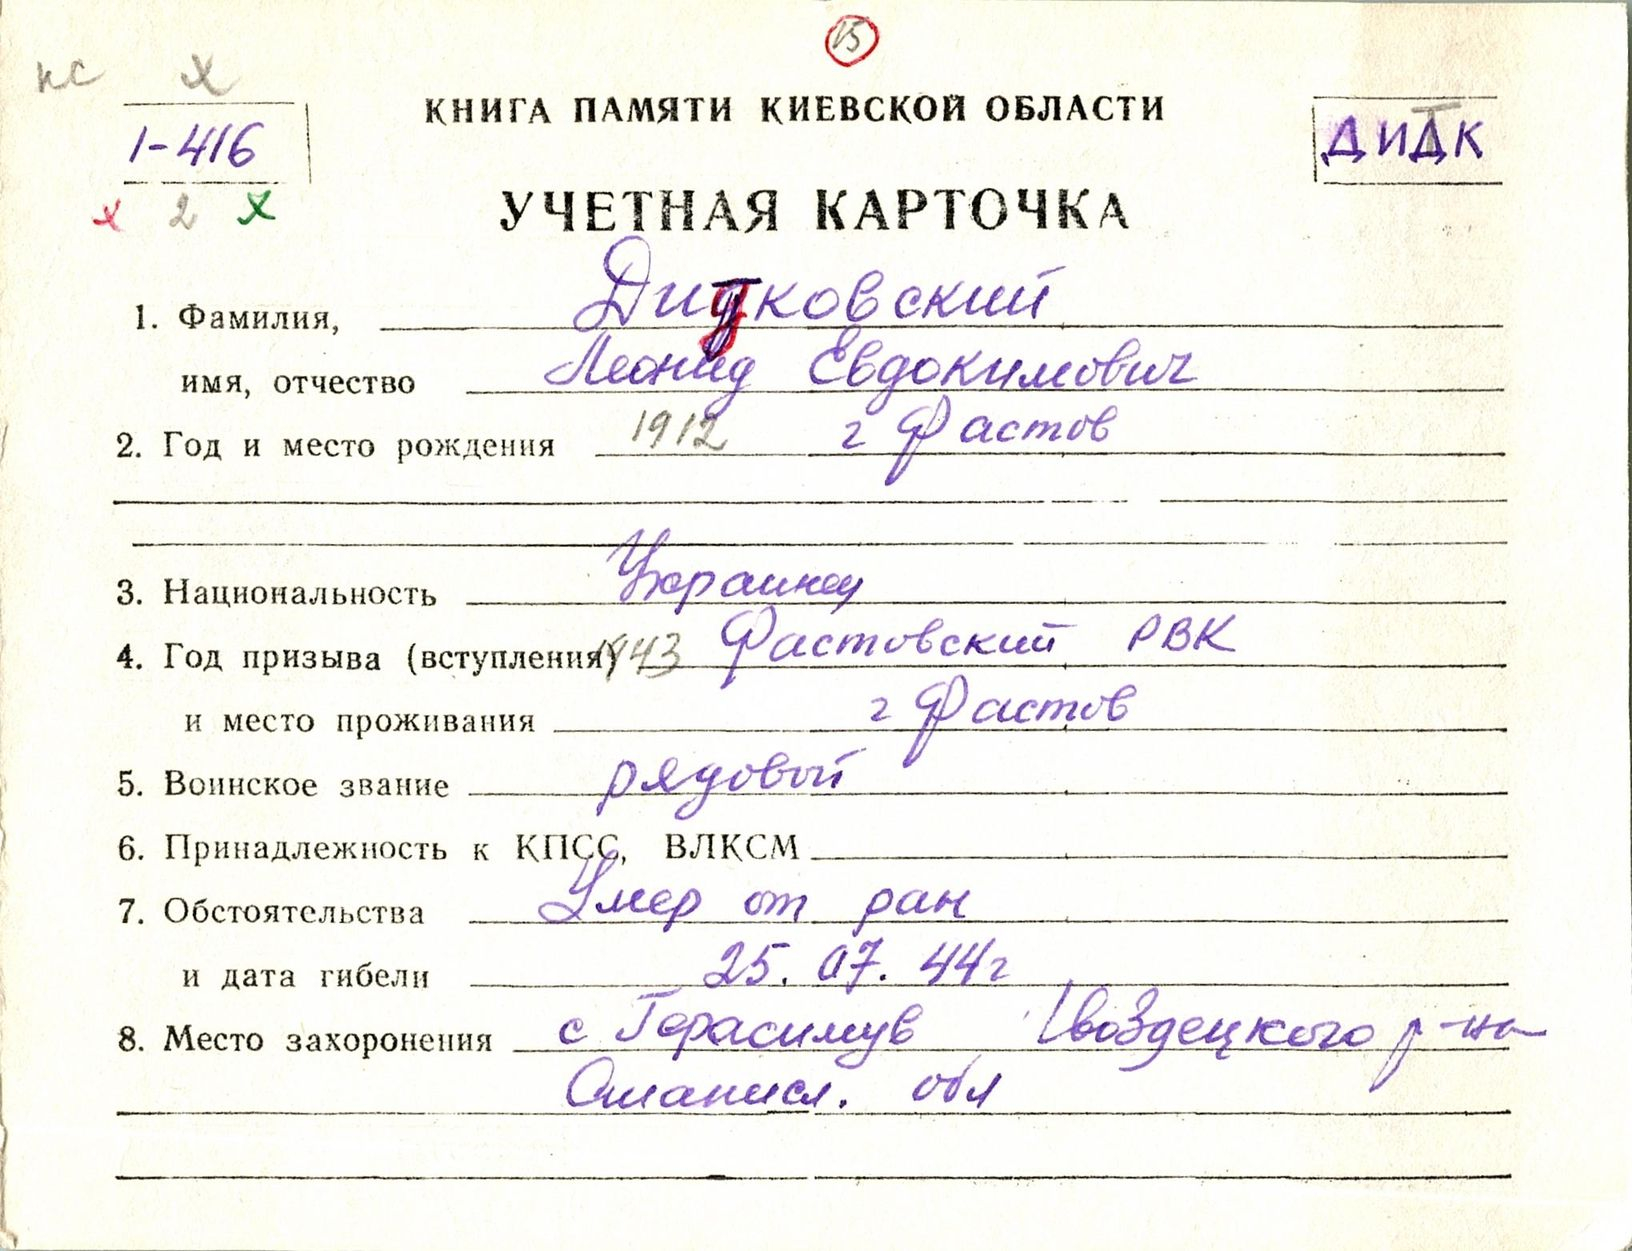 15
пс х
КНИГА ПАМЯТИ КИЕВСКОЙ ОБЛАСТИ
1-416
ДИДК
х 2 х
УЧЕТНАЯ КАРТОЧКА
1. Фамилия, Дидковский
имя, отчество Леонид Евдокимович
2. Год и место рождения 1912 г Фастов
3. Национальность Украинец
4. Год призыва (вступления) 1943 Фастовский РВК
и место проживания г Фастов
5. Воинское звание рядовой
6. Принадлежность к КПСС, ВЛКСМ
7. Обстоятельства Умер от ран
и дата гибели 25.07.44г
8. Место захоронения с Герасимув Гвоздецкого р-на
Станисл. обл